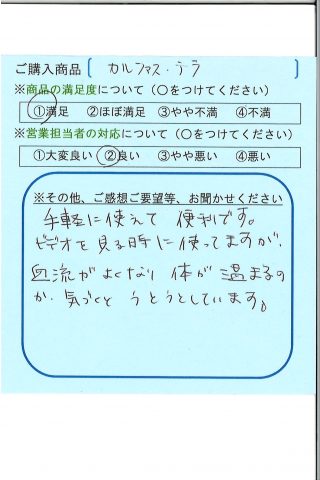 ご購入商品〔 カルファス・テラ 〕
※商品の満足度について（〇をつけてください）
①満足 ②ほぼ満足 ③やや不満 ④不満
※営業担当者の対応について（〇をつけてください）
①大変良い ②良い ③やや悪い ④悪い
※その他、ご感想ご要望等、お聞かせください
手軽に使えて 便利です。
ビデオを見る時に使ってますが、
血流がよくなり 体が 温まるの
か、気づくと うとうとしています。